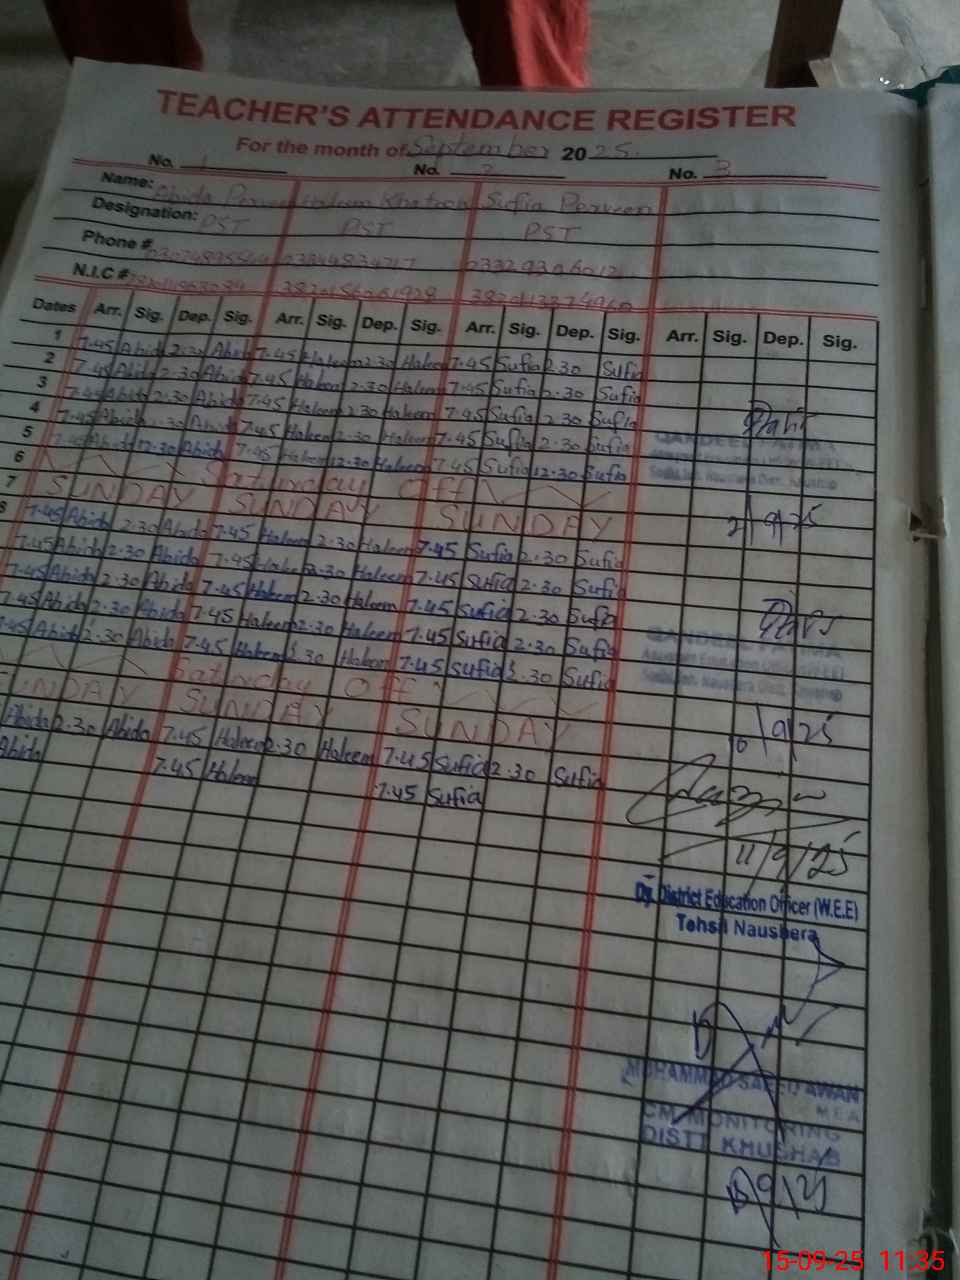 TEACHER'S ATTENDANCE REGISTER
For the month of September 2025
No. 1 No. 2 No. 3
Name: Abida Haleem Khatoon Sufia Perveen
Designation: PST PST PST
Phone #
N.I.C #
Dates Arr. Sig. Dep. Sig. Arr. Sig. Dep. Sig. Arr. Sig. Dep. Sig. Arr. Sig. Dep. Sig.
1 7.45 Abida 2.30 Abida 7.45 Haleem 2.30 Haleem 7.45 Sufia 2.30 Sufia
2 7.45 Abida 2.30 Abida 7.45 Haleem 2.30 Haleem 7.45 Sufia 2.30 Sufia
3 7.45 Abida 2.30 Abida 7.45 Haleem 2.30 Haleem 7.45 Sufia 2.30 Sufia
4 7.45 Abida 2.30 Abida 7.45 Haleem 2.30 Haleem 7.45 Sufia 2.30 Sufia
5 7.45 Abida 12.30 Abida 7.45 Haleem 12.30 Haleem 7.45 Sufia 12.30 Sufia
6 Saturday Off
7 SUNDAY SUNDAY SUNDAY
8 7.45 Abida 2.30 Abida 7.45 Haleem 2.30 Haleem 7.45 Sufia 2.30 Sufia
7.45 Abida 2.30 Abida 7.45 Haleem 2.30 Haleem 7.45 Sufia 2.30 Sufia
7.45 Abida 2.30 Abida 7.45 Haleem 2.30 Haleem 7.45 Sufia 2.30 Sufia
7.45 Abida 2.30 Abida 7.45 Haleem 2.30 Haleem 7.45 Sufia 2.30 Sufia
7.45 Abida 2.30 Abida 7.45 Haleem 2.30 Haleem 7.45 Sufia 2.30 Sufia
Saturday Off
SUNDAY SUNDAY SUNDAY
Abida 2.30 Abida 7.45 Haleem 2.30 Haleem 7.45 Sufia 2.30 Sufia
Abida 7.45 Haleem 7.45 Sufia
2/9/25
10/9/25
11/9/25
Dy. District Education Officer (W.E.E)
Tehsil Naushera
MUHAMMAD SAEED AWAN
MEA
CM MONITORING
DISTT KHUSHAB
15-09-25 11:35